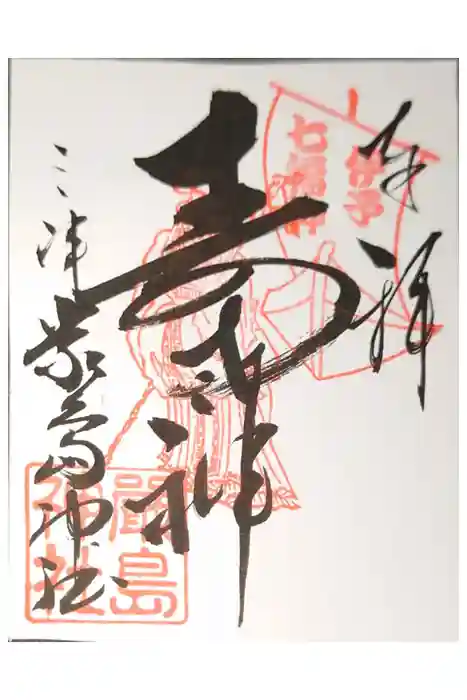 奉拝
伊予
七福神
寿老神
三津 厳島神社
嚴島
神社